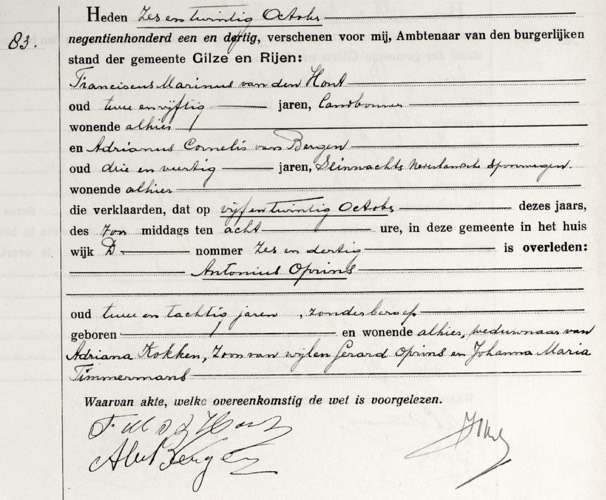 83.
Heden Zes en twintig October
negentienhonderd een en dertig, verschenen voor mij, Ambtenaar van den burgerlijken
stand der gemeente Gilze en Rijen:
Franciscus Marinus van den Hout
oud twee en vijftig jaren, Landbouwer
wonende alhier
en Adrianus Cornelis van Bergen
oud drie en veertig jaren, Seinwachter Nederlandsche Spoorwegen.
wonende alhier
die verklaarden, dat op vijf en twintig October dezes jaars,
des middags ten acht ure, in deze gemeente in het huis
wijk D. nommer Zes en dertig is overleden:
Antonius Oprins
oud twee en tachtig jaren, zonder beroep
geboren en wonende alhier, weduwnaar van
Adriana Kokken, Zoon van wijlen Gerard Oprins en Johanna Maria
Timmermans
Waarvan akte, welke overeenkomstig de wet is voorgelezen.